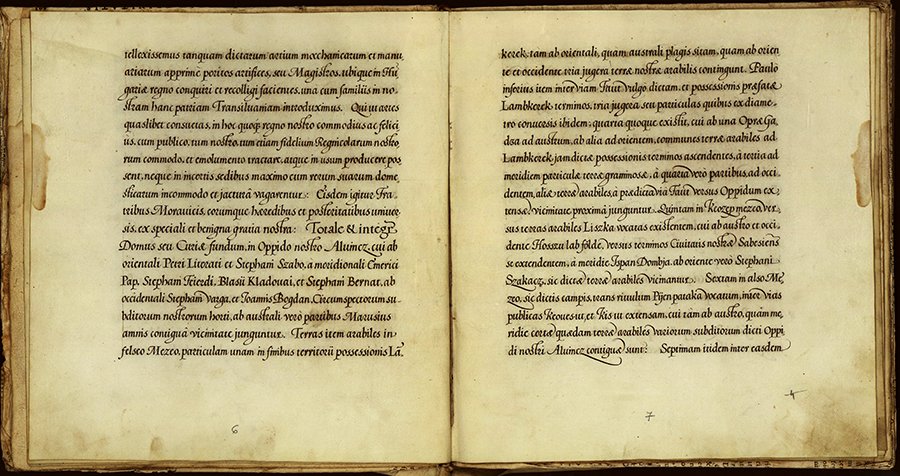 tellexissemus tanquam dictarum artium mœchanicarum et manu
ariarum apprime peritos artifices, seu Magistros, ubique in Hu
gariæ regno conquiri et recolligi facientes, una cum familiis in no
stram hanc patriam Transiluaniam introduximus. Qui ut artes
quaslibet consuetas, in hoc quoq; regno nostro commodius ac felici
us, cum publico, tum nostro, tum etiam fidelium Regnicolarum nostro
rum commodo, et emolumento tractare, atque in usum producere pos
sent, neque in incertis sedibus maximo cum rerum suarum dome
sticarum incommodo et jactura vagarentur: Eisdem igitur Fra
tribus Morauicis, eorumque hæredibus et posteritatibus univer
sis, ex speciali et benigna gratia nostra: Totale & integr
Domus seu Curiæ fundum, in Oppido nostro Aluincz, cui ab
orientali Petri Literati et Stephani Szabo, a meridionali Emerici
Pap, Stephani Feierdi, Blasii Kladouai, et Stephani Bernat, ab
occidentali Stephani Varga, et Ioannis Bogdan, Circumspectorum su
bditorum nostrorum horti, ab australi vero partibus Marusius
amnis contigua vicinitate junguntur. Terras item arabiles in
felseo Mezeo, particulam unam in finibus territorii possessionis Lā
6
kerek, tam ab orientali, quam australi plagis sitam, quam ab orien
te et occidente tria jugera terræ nostræ arabilis contingunt. Paulo
inferius item inter viam Faiut vulgo dictam, et possessionis præfatæ
Lambkerek terminos, tria jugera seu particulas quibus ex diame
tro conuersis ibidem: quarta quoque existit, cui ab una Opræ Ga,
dsa ad austrum, ab alia ad orientem, communes terræ arabiles ad
Lambkerek jam dictæ possessionis terminos ascendentes, a tertia ad
meridiem particulæ terræ graminosæ, a quarta vero partibus, ad occi
dentem, aliæ terræ arabiles, a prædicta via Faiut versus Oppidum ex,
tensæ, vicinitate proxima junguntur. Quintam in Keozep mezeo, ver
sus terras arabiles Liszka vocatas existentem, cui ab austro et occi,
dente Hosszu lab földe, versus terminos Civitatis nostræ Sabesiens
se extendentem, a meridie Ispan Dombja, ab oriente vero Stephani
Szakacz, sic dictæ terræ arabiles vicinantur. Sextam in also Me
zeo, sic dictis campis, trans rivulum Pijen pataka vocatum, inter vias
publicas Keouesut, et Kis ut extensam, cui tam ab austro, quam me,
ridie certæ quædam terræ arabiles variorum subditorum dicti Oppi
di nostri Aluincz contiguæ sunt: Septimam itidem inter easdem
7